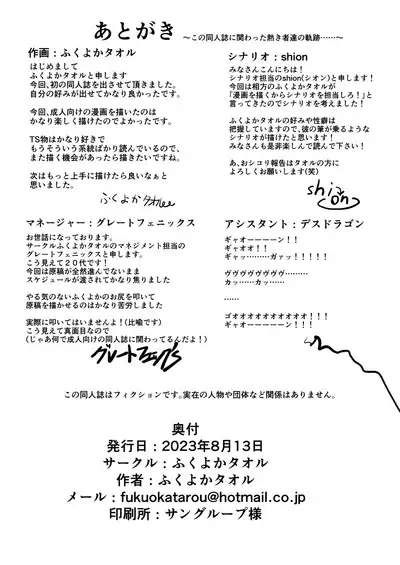 あとがき ～この同人誌に関わった熱き者達の軌跡……～
作画：ふくよかタオル
はじめまして
ふくよかタオルと申します
今回、初の同人誌を出させて頂きました。
自分の好みが出せてかなり良かったです。
今回、成人向けの漫画を描いたのは
かなり楽しく描けたのでよかったです。
TS物はかなり好きで
もうそういう系統ばかり読んでいるので、
また描く機会があったら描きたいですね。
次はもっと上手に描けたら良いなぁと
思いました。
ふくよかタオル
シナリオ：shion
みなさんこんにちは！
シナリオ担当のshion(シオン)と申します！
今回は相方のふくよかタオルが
「漫画を描くからシナリオを担当しろ！」と
言ってきたのでシナリオを考えました！
ふくよかタオルの好みや性癖は
把握していますので、彼の筆が乗るような
シナリオが描けたと思います！
みなさんも是非楽しんで読んで下さい！
あ、おシコリ報告はタオルの方に
よろしくお願いします(笑)
shion
マネージャー：グレートフェニックス
お世話になっております。
サークルふくよかタオルのマネジメント担当の
グレートフェニックスと申します。
こう見えて２０代です！
今回は原稿が全然進んでないまま
スケジュールが渡されてかなり焦りました
やる気のないふくよかのお尻を叩いて
原稿を描かせるのはかなり苦労しました
実際に叩いてはいませんよ！(比喩です)
こう見えて真面目なので
(じゃあ何で成人向けの同人誌に関わってるんだよ！)
グレートフェニックス
アシスタント：デスドラゴン
ギャオーーーーン！！
ギャオオ！！
ギャッ………ガァッ！！！！！
ヴヴヴヴヴヴヴヴ………
カッ……カっ…
……
ゴオオオオオオオオオオ！！！
ギャオーーーーーン！！！
この同人誌はフィクションです。実在の人物や団体など関係はありません。
奥付
発行日：2023年8月13日
サークル：ふくよかタオル
作者：ふくよかタオル
メール：fukuokatarou@hotmail.co.jp
印刷所：サングループ様